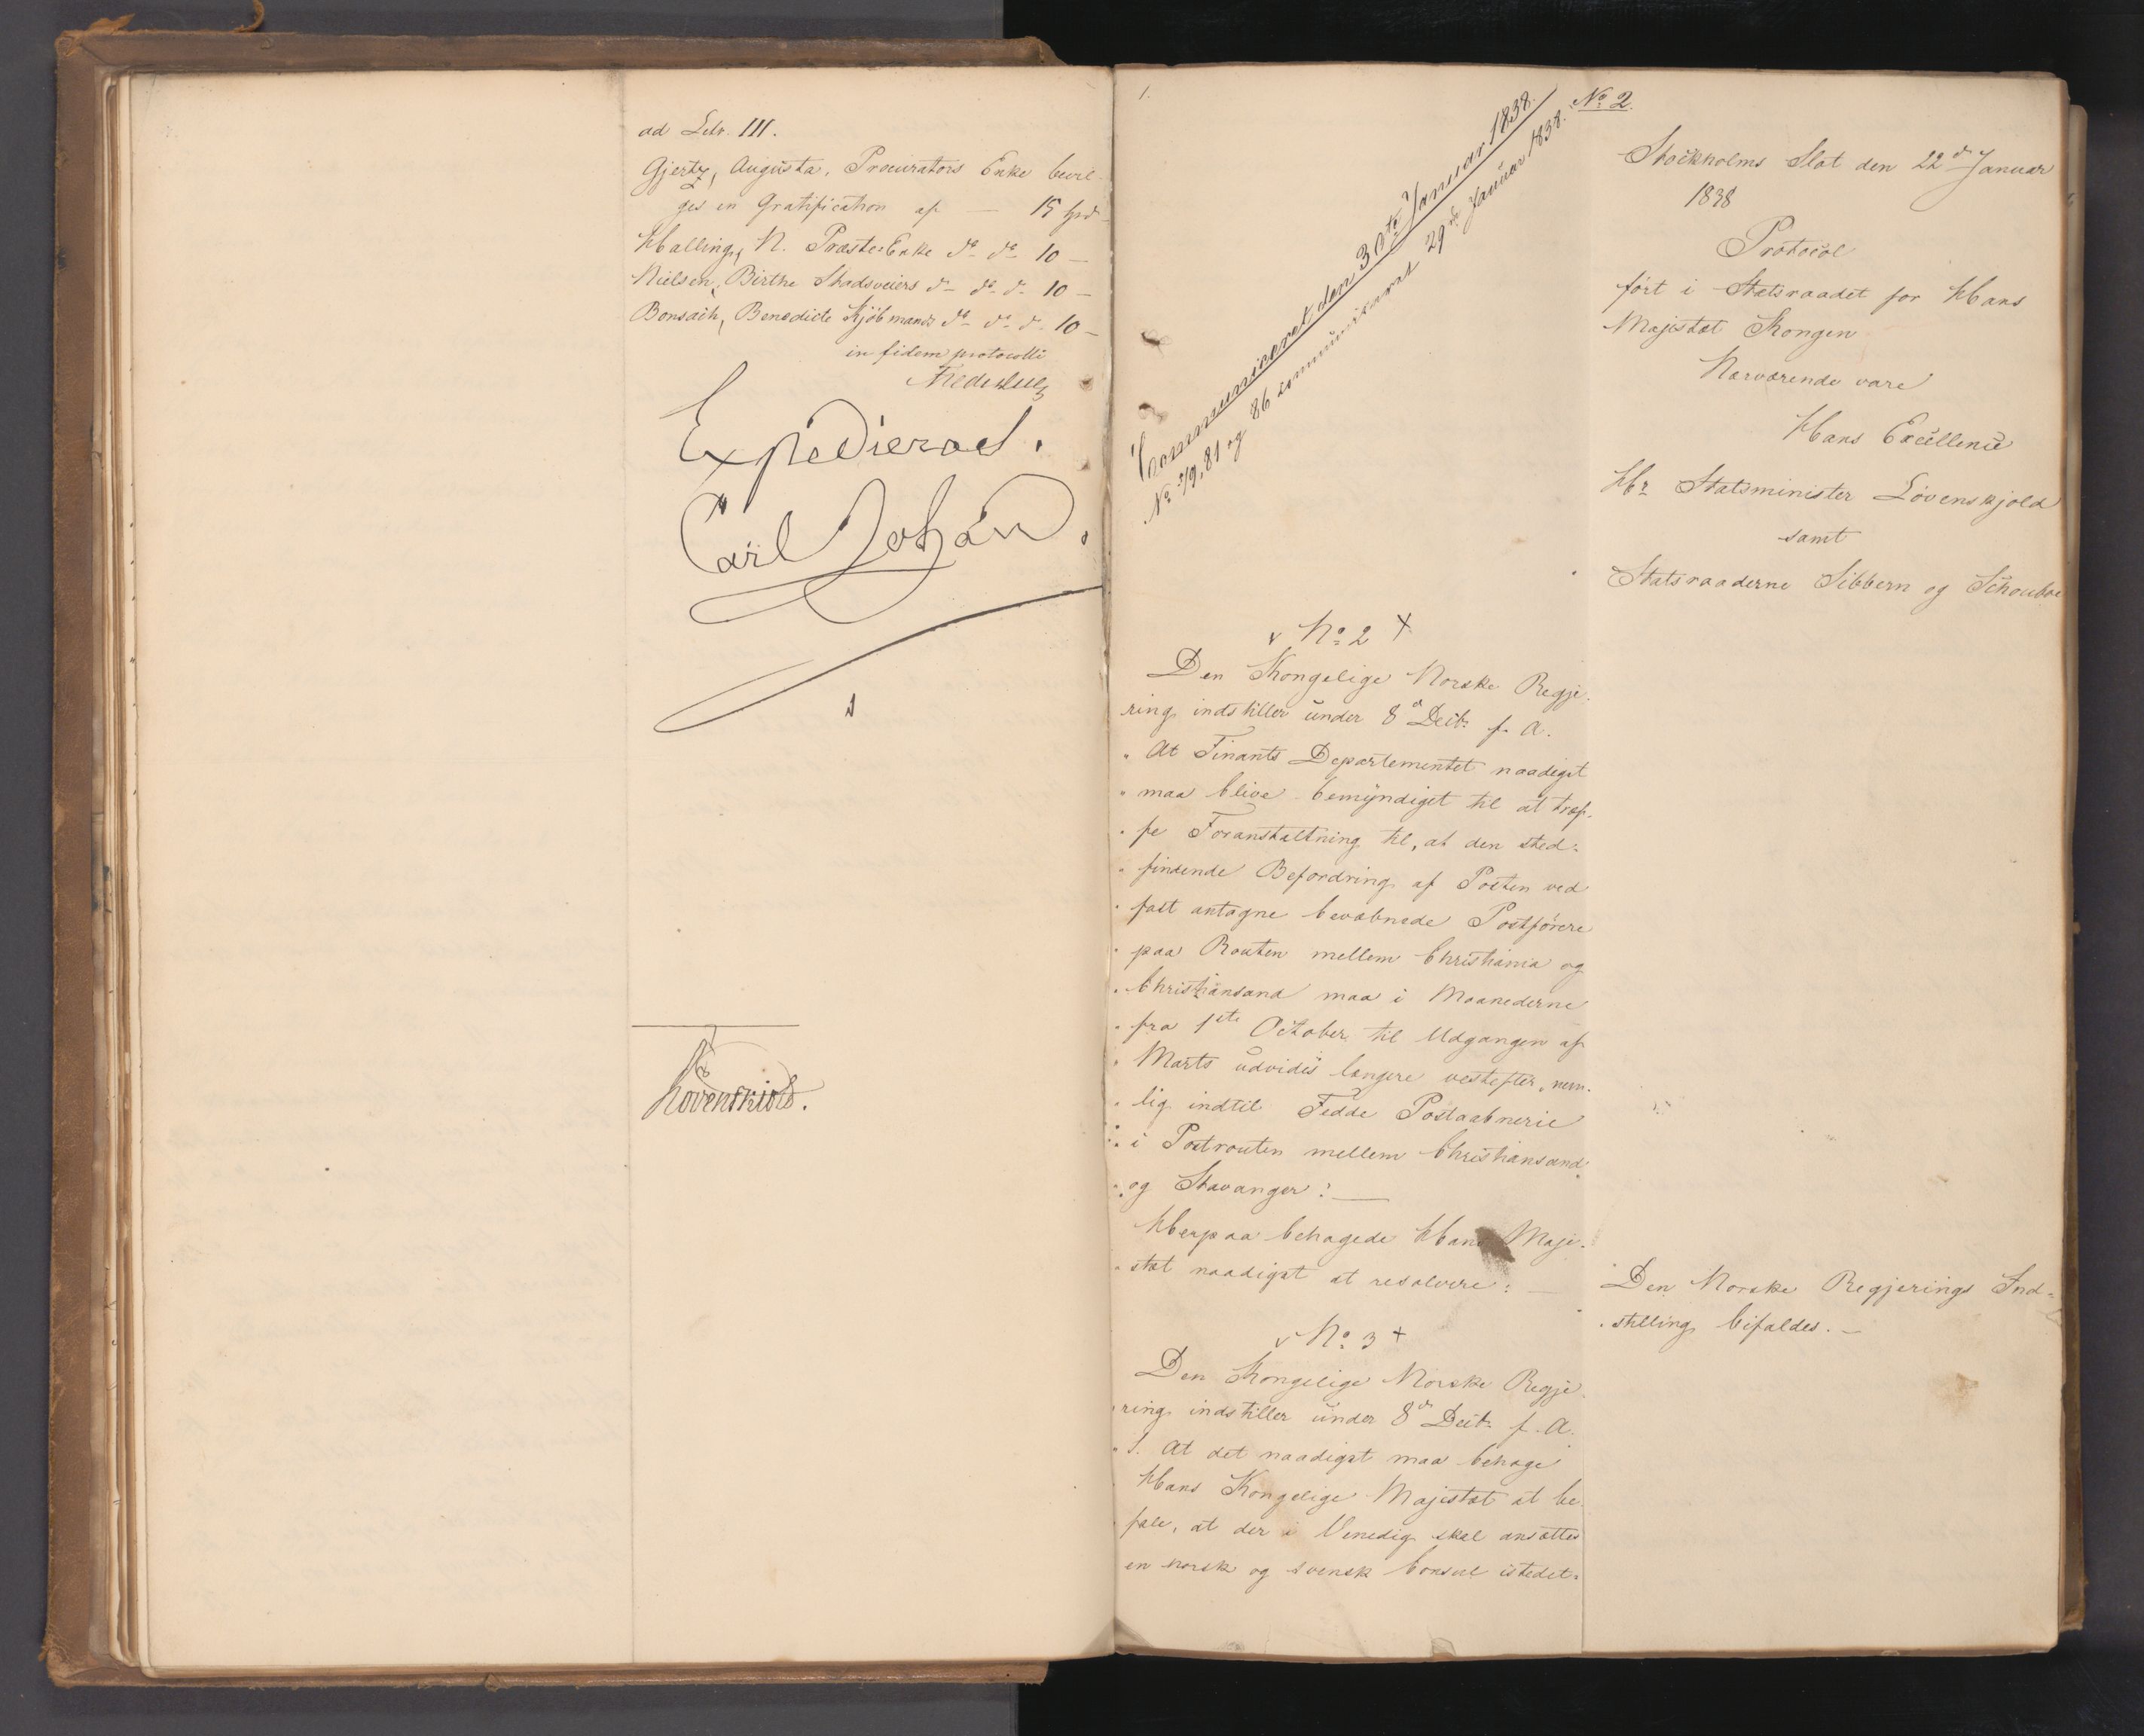 ad Litr. III.
Gjertz, Augusta, Procurators Enke bevil-
ges en Gratification af — 15 Spd
Halling, N. Præste-Enke do do 10 —
Nielsen, Birthe Stadsveiers do do do 10 —
Bonsach, Benedicte Kjöbmands do do do 10 —
in fidem protocolli
Expedieras.
Carl Johan.
Lövenskiold.
1.
Communiceret den 30te Januar 1838.
No 79, 81 og 86 communiceret 29de Januar 1838.
No 2.
Stockholms Slot den 22d Januar
1838
Protocol
fört i Statsraadet for Hans
Majestæt Kongen
Nærværende vare
Hans Excellence
Hr Statsminister Lövenskjold
samt
Statsraaderne Sibbern og Schouboe
No 2 +
Den Kongelige Norske Regje-
ring indstiller under 8d Decbr f. A.
" At Finants Departementet naadigst
" maa blive bemyndiget til at træf-
" fe Foranstaltning til, at den sted-
" findende Befordring af Posten ved
" fast antagne bevæbnede Postförere
" paa Routen mellem Christiania og
" Christiansand maa i Maanederne
" fra 1ste October til Udgangen af
" Marts udvides længere vestefter, nem-
" lig indtil Fedde Postaabnerie
" i Postrouten mellem Christiansand
" og Stavanger: —
Herpaa behagede Hans Maje-
stæt naadigst at resolvere: —
Den Norske Regjerings Ind-
stilling bifaldes. —
No 3 +
Den Kongelige Norske Regje-
ring indstiller under 8de Decbr f. A.
" 1. At det naadigst maa behage
Hans Kongelige Majestæt at be-
fale, at der i Venedig skal ansættes
en norsk og svensk Consul istedet-